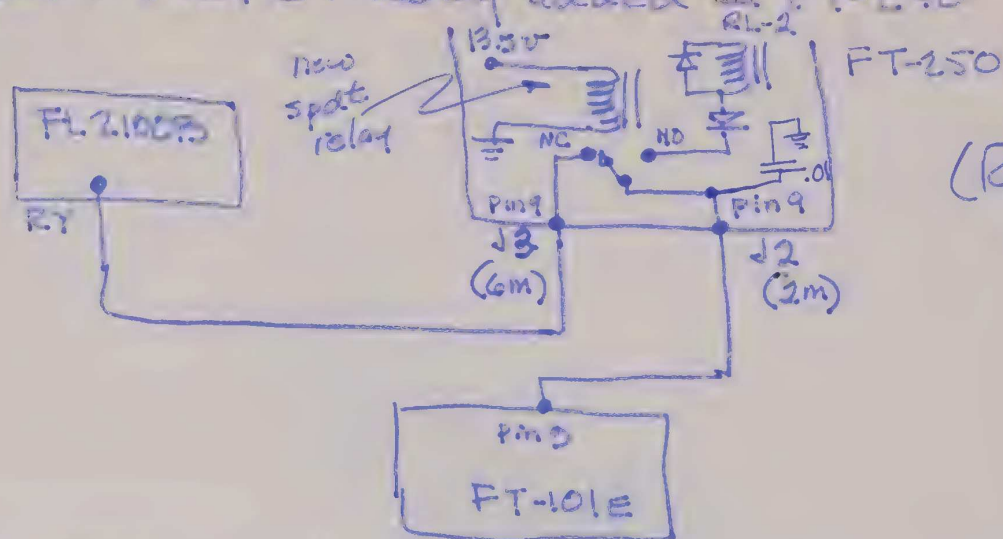 RL-2
13.5v
FT-250
new
spdt
relay
FL2100B
NC
NO
.01
RY
Pin 9
Pin 9
J3
J2
(6m)
(2m)
Pin
FT-101E